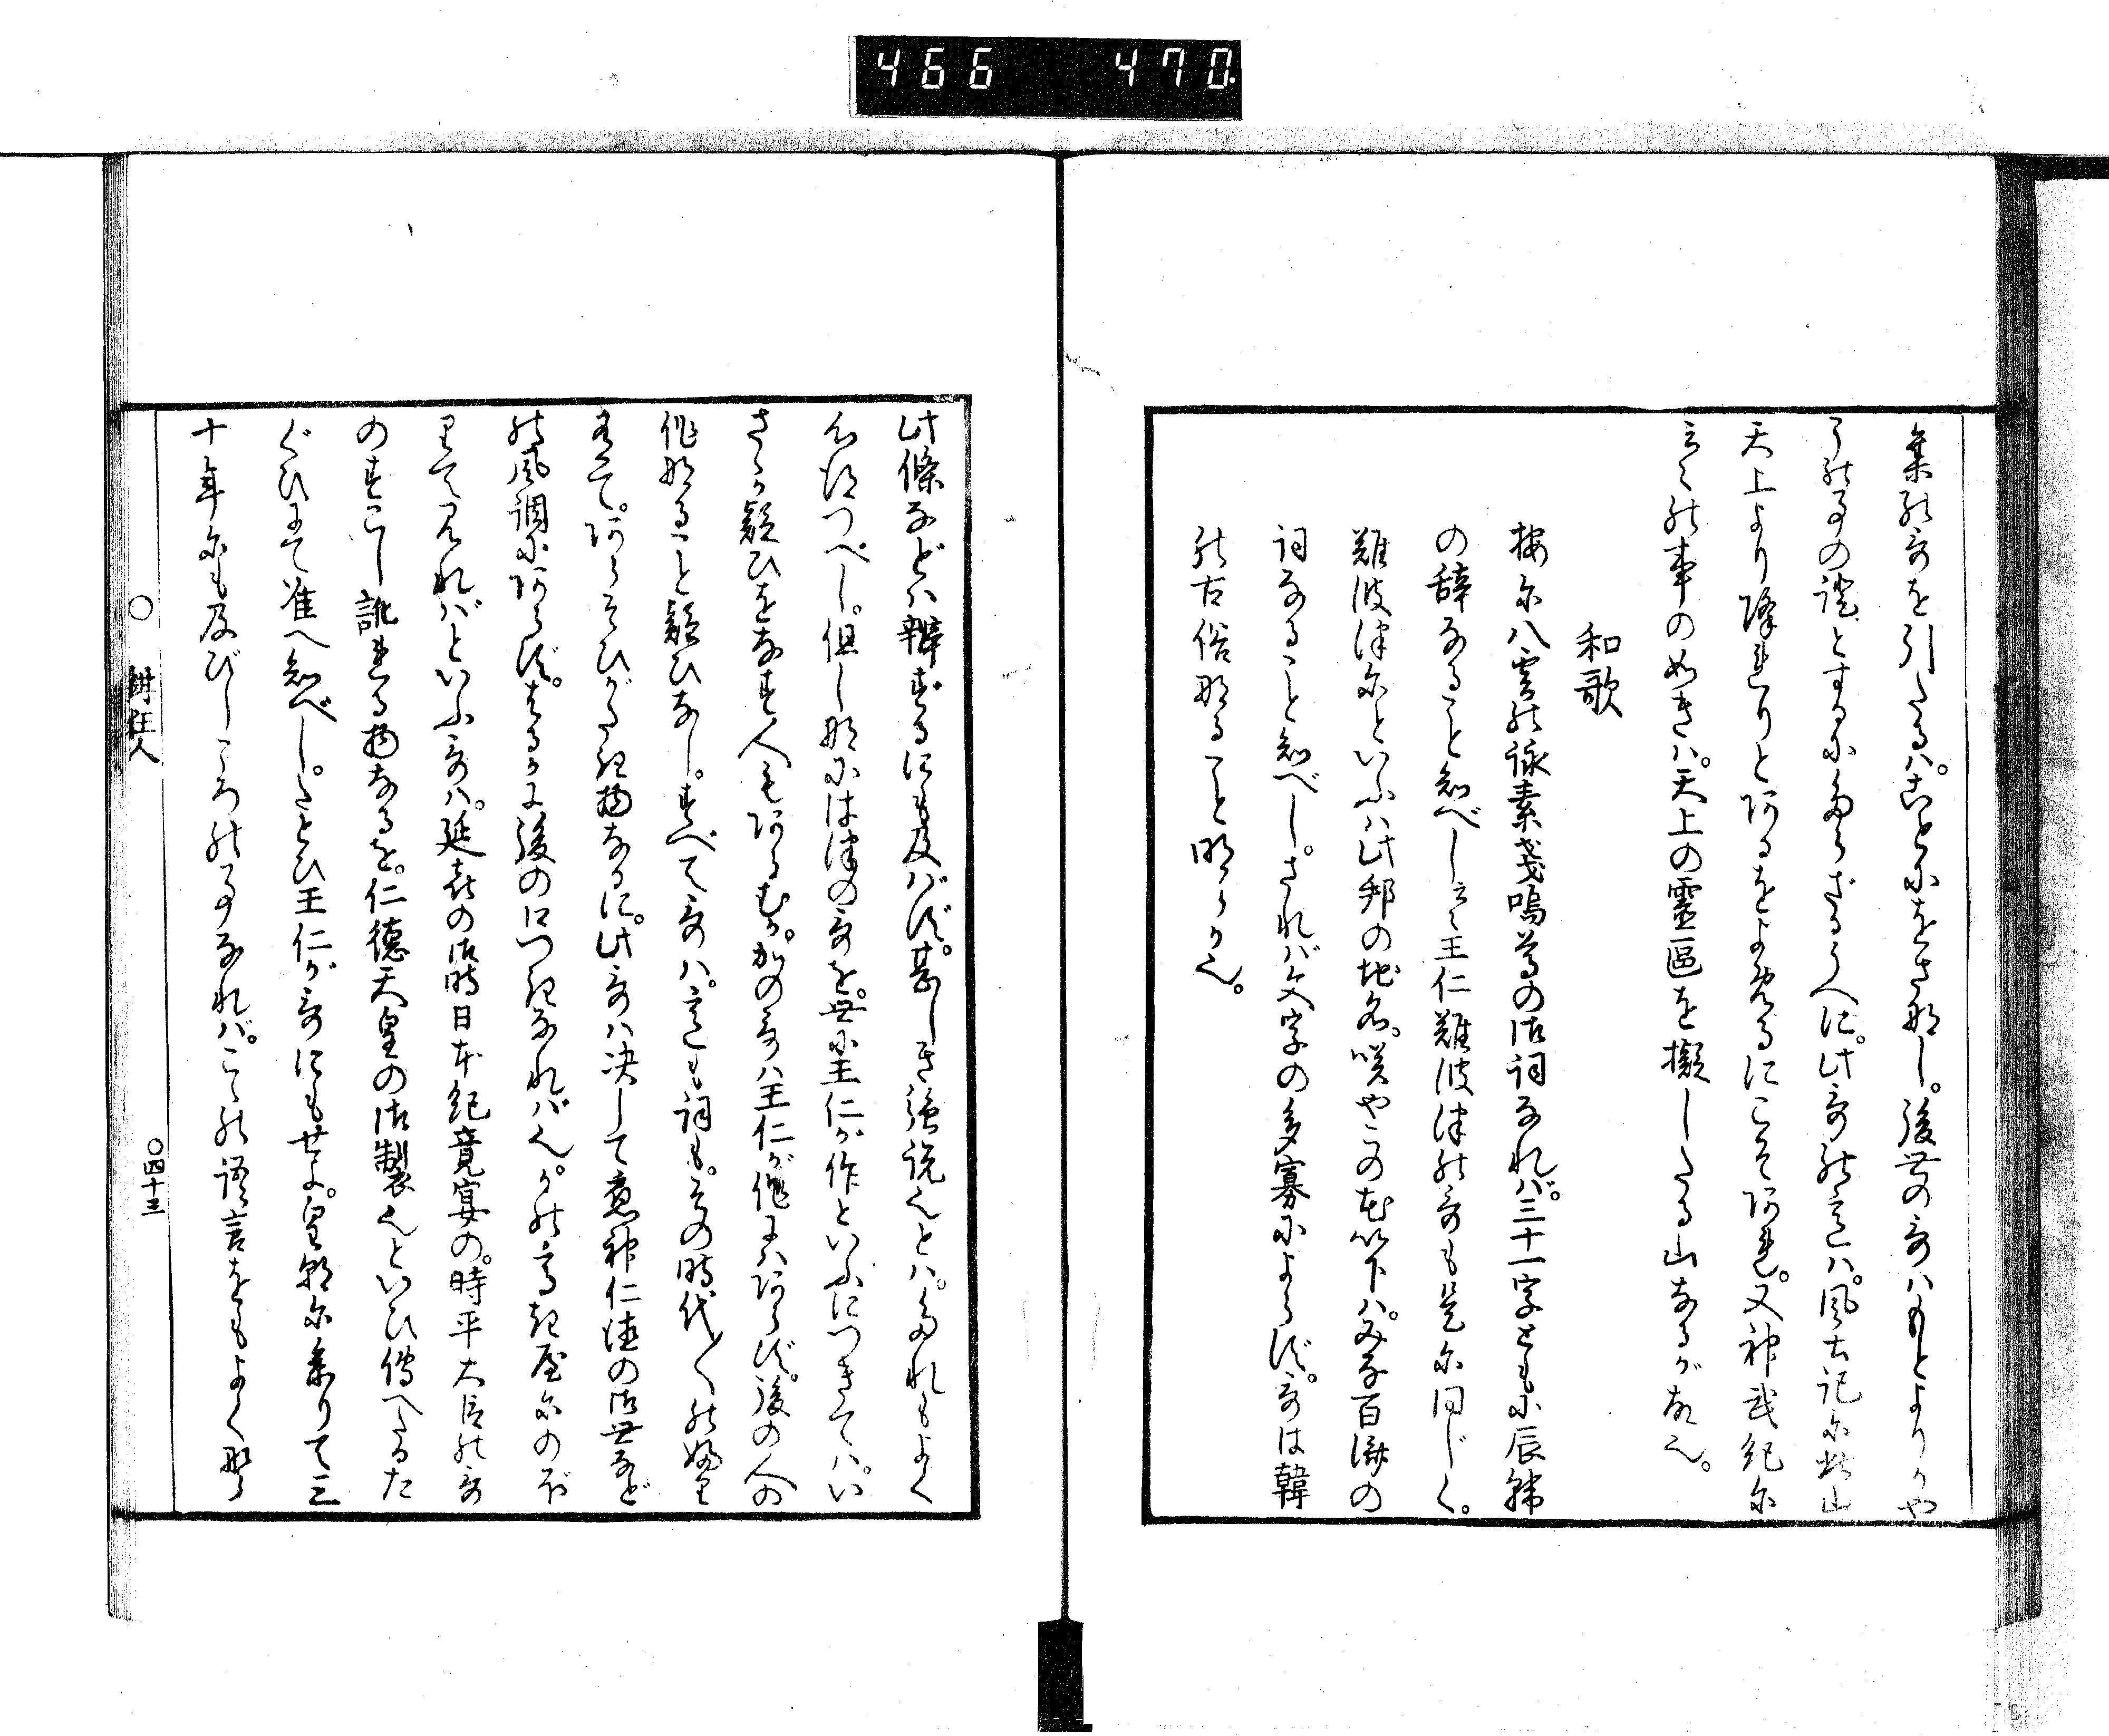 466 470
集の哥を引たるハ。ひとにをさなし。後世の哥ハもとよりうや
うの事の證とするに多らざるうへに。此哥の意ハ。風土記に此山
天上より降れりとあるをよめるにこそあれ。又神武紀に
云々の事のごときハ。天上の靈區を擬したる山なるが故也。
和歌
按に八雲の詠素戔嗚尊の御詞なれバ。三十一字ともに辰韓
の辞なること知べし云々王仁難波津の哥も是に同じく。
難波津にといふハ此邦の地名。咲やこの花以下ハ。みな百濟の
詞なること知べし。されバ文字の多寡によらず。哥は韓
の古俗なること明らか也。
此條などハ辨ずるにも及バず。甚しき強説也とハ。たれもよく
心得つべし。但し難には津の哥を。世に王仁が作といふにつきてハ。い
さゝか疑ひをなす人もあるむか。かの哥ハ王仁が作にハあらず。後の人の
作なること疑ひなし。すべて哥ハ。意も詞も。その時代〱のふり
有て。あらそひがたき物なるに。此哥ハ决して應神仁徳の御世など
の風調にあらず。はるかに後の口つきなれバ也。かの高き屋にのぼ
りて見れバといふ哥ハ。延喜の御時日本紀竟宴の。時平大臣の哥
のすこし訛れる物なるを。仁徳天皇の御製也といひ傳へたるた
ぐひにて准へ知べし。たとひ王仁が哥にもせよ。皇朝に參りて三
十年にも及びしころの事なれバ。こゝの語言をもよく習
○ 鉗狂人
○四十三